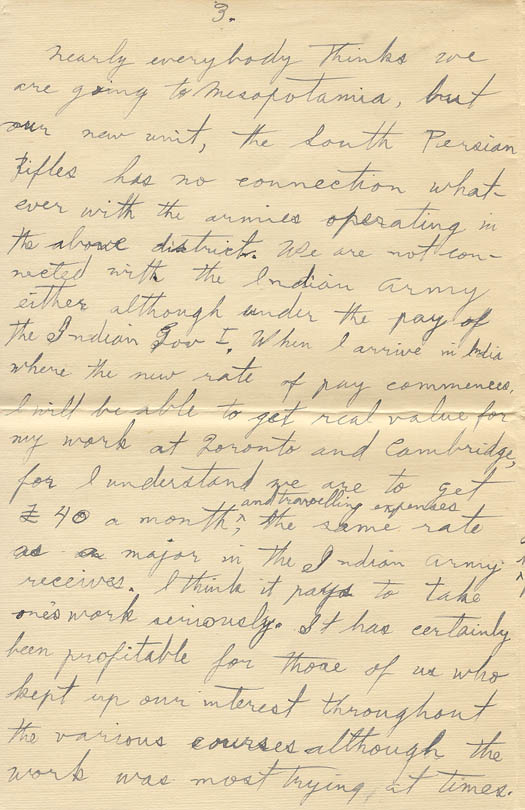 3.
Nearly everybody thinks we
are going to Mesopotamia, but
our new unit, the South Persian
Rifles has no connection what-
ever with the armies operating in
the above district. We are not con-
nected with the Indian Army
either although under the pay of
the Indian Gov't. When I arrive in India
where the new rate of pay commences,
I will be able to get real value for
my work at Toronto and Cambridge,
for I understand we are to get
and travelling expenses
£40 a month, ^ the same rate
as a major in the Indian Army
receives. I think it pays to take
one's work seriously. It has certainly
been profitable for those of us who
kept up our interest throughout
the various courses although the
work was most trying at times.